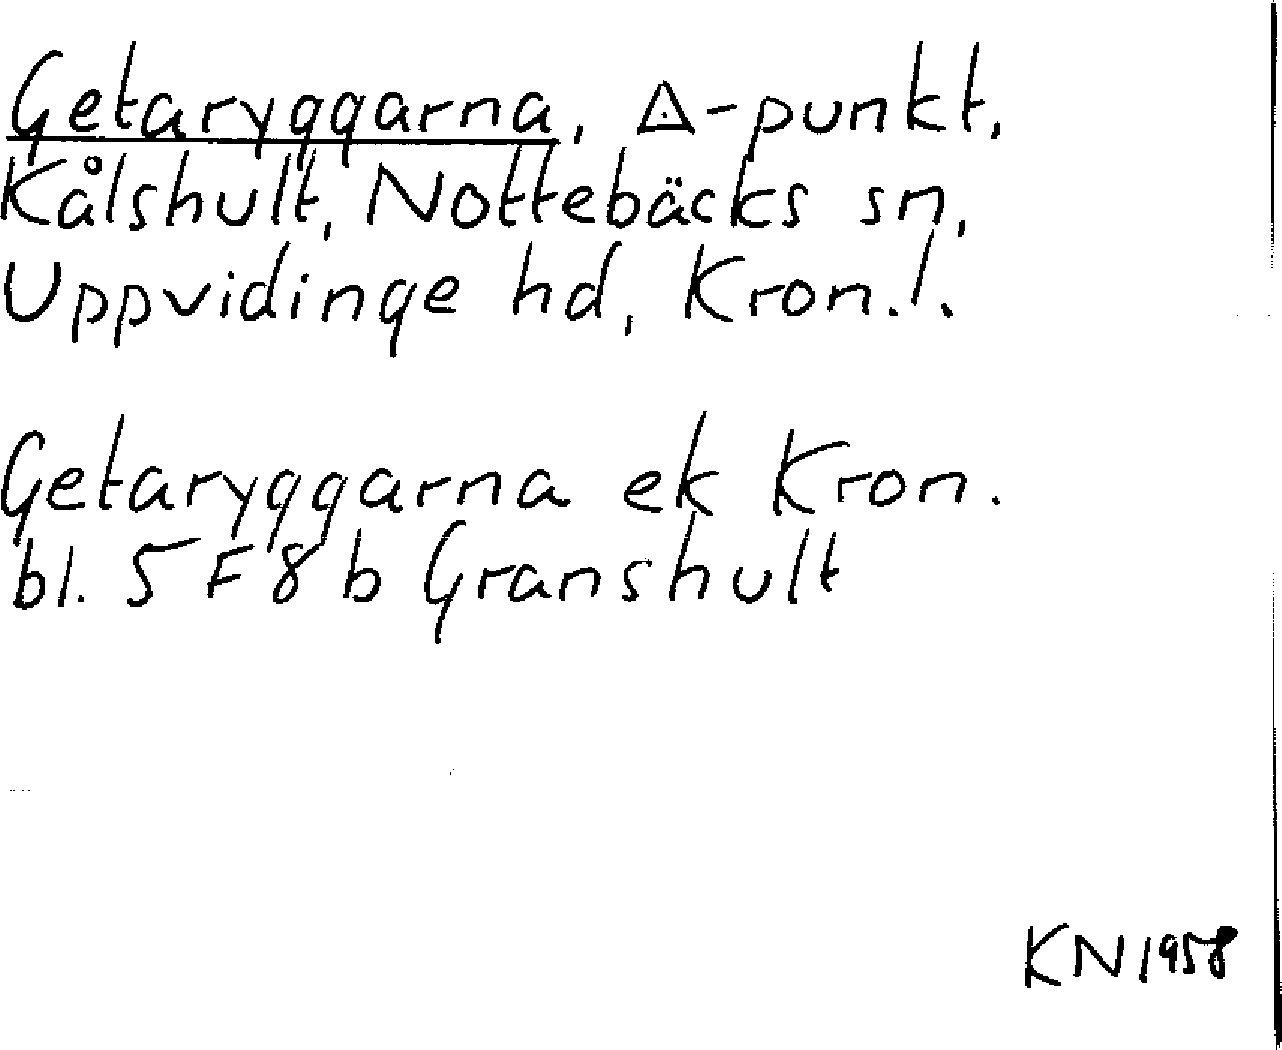 Getaryggarna, △-punkt,
Kålshult, Nottebäcks sn,
Uppvidinge hd, Kron.l.
Getaryggarna ek Kron.
bl. 5 F 8 b Granshult
KN 1958